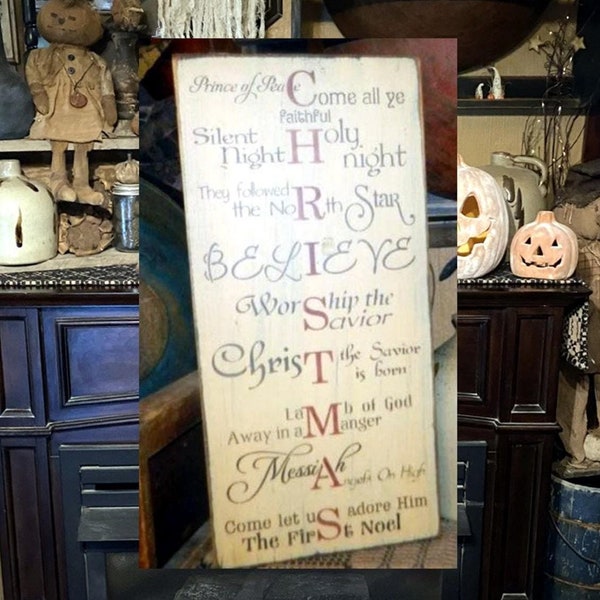 Prince of Peace
Come all ye
faithful
Silent Holy
Night Night night
They followed
the North Star
BELIEVE
Worship the
Savior
Christ the Savior
is born
Lamb of God
Away in a Manger
Messiah Angels On High
Come let us adore Him
The First Noel